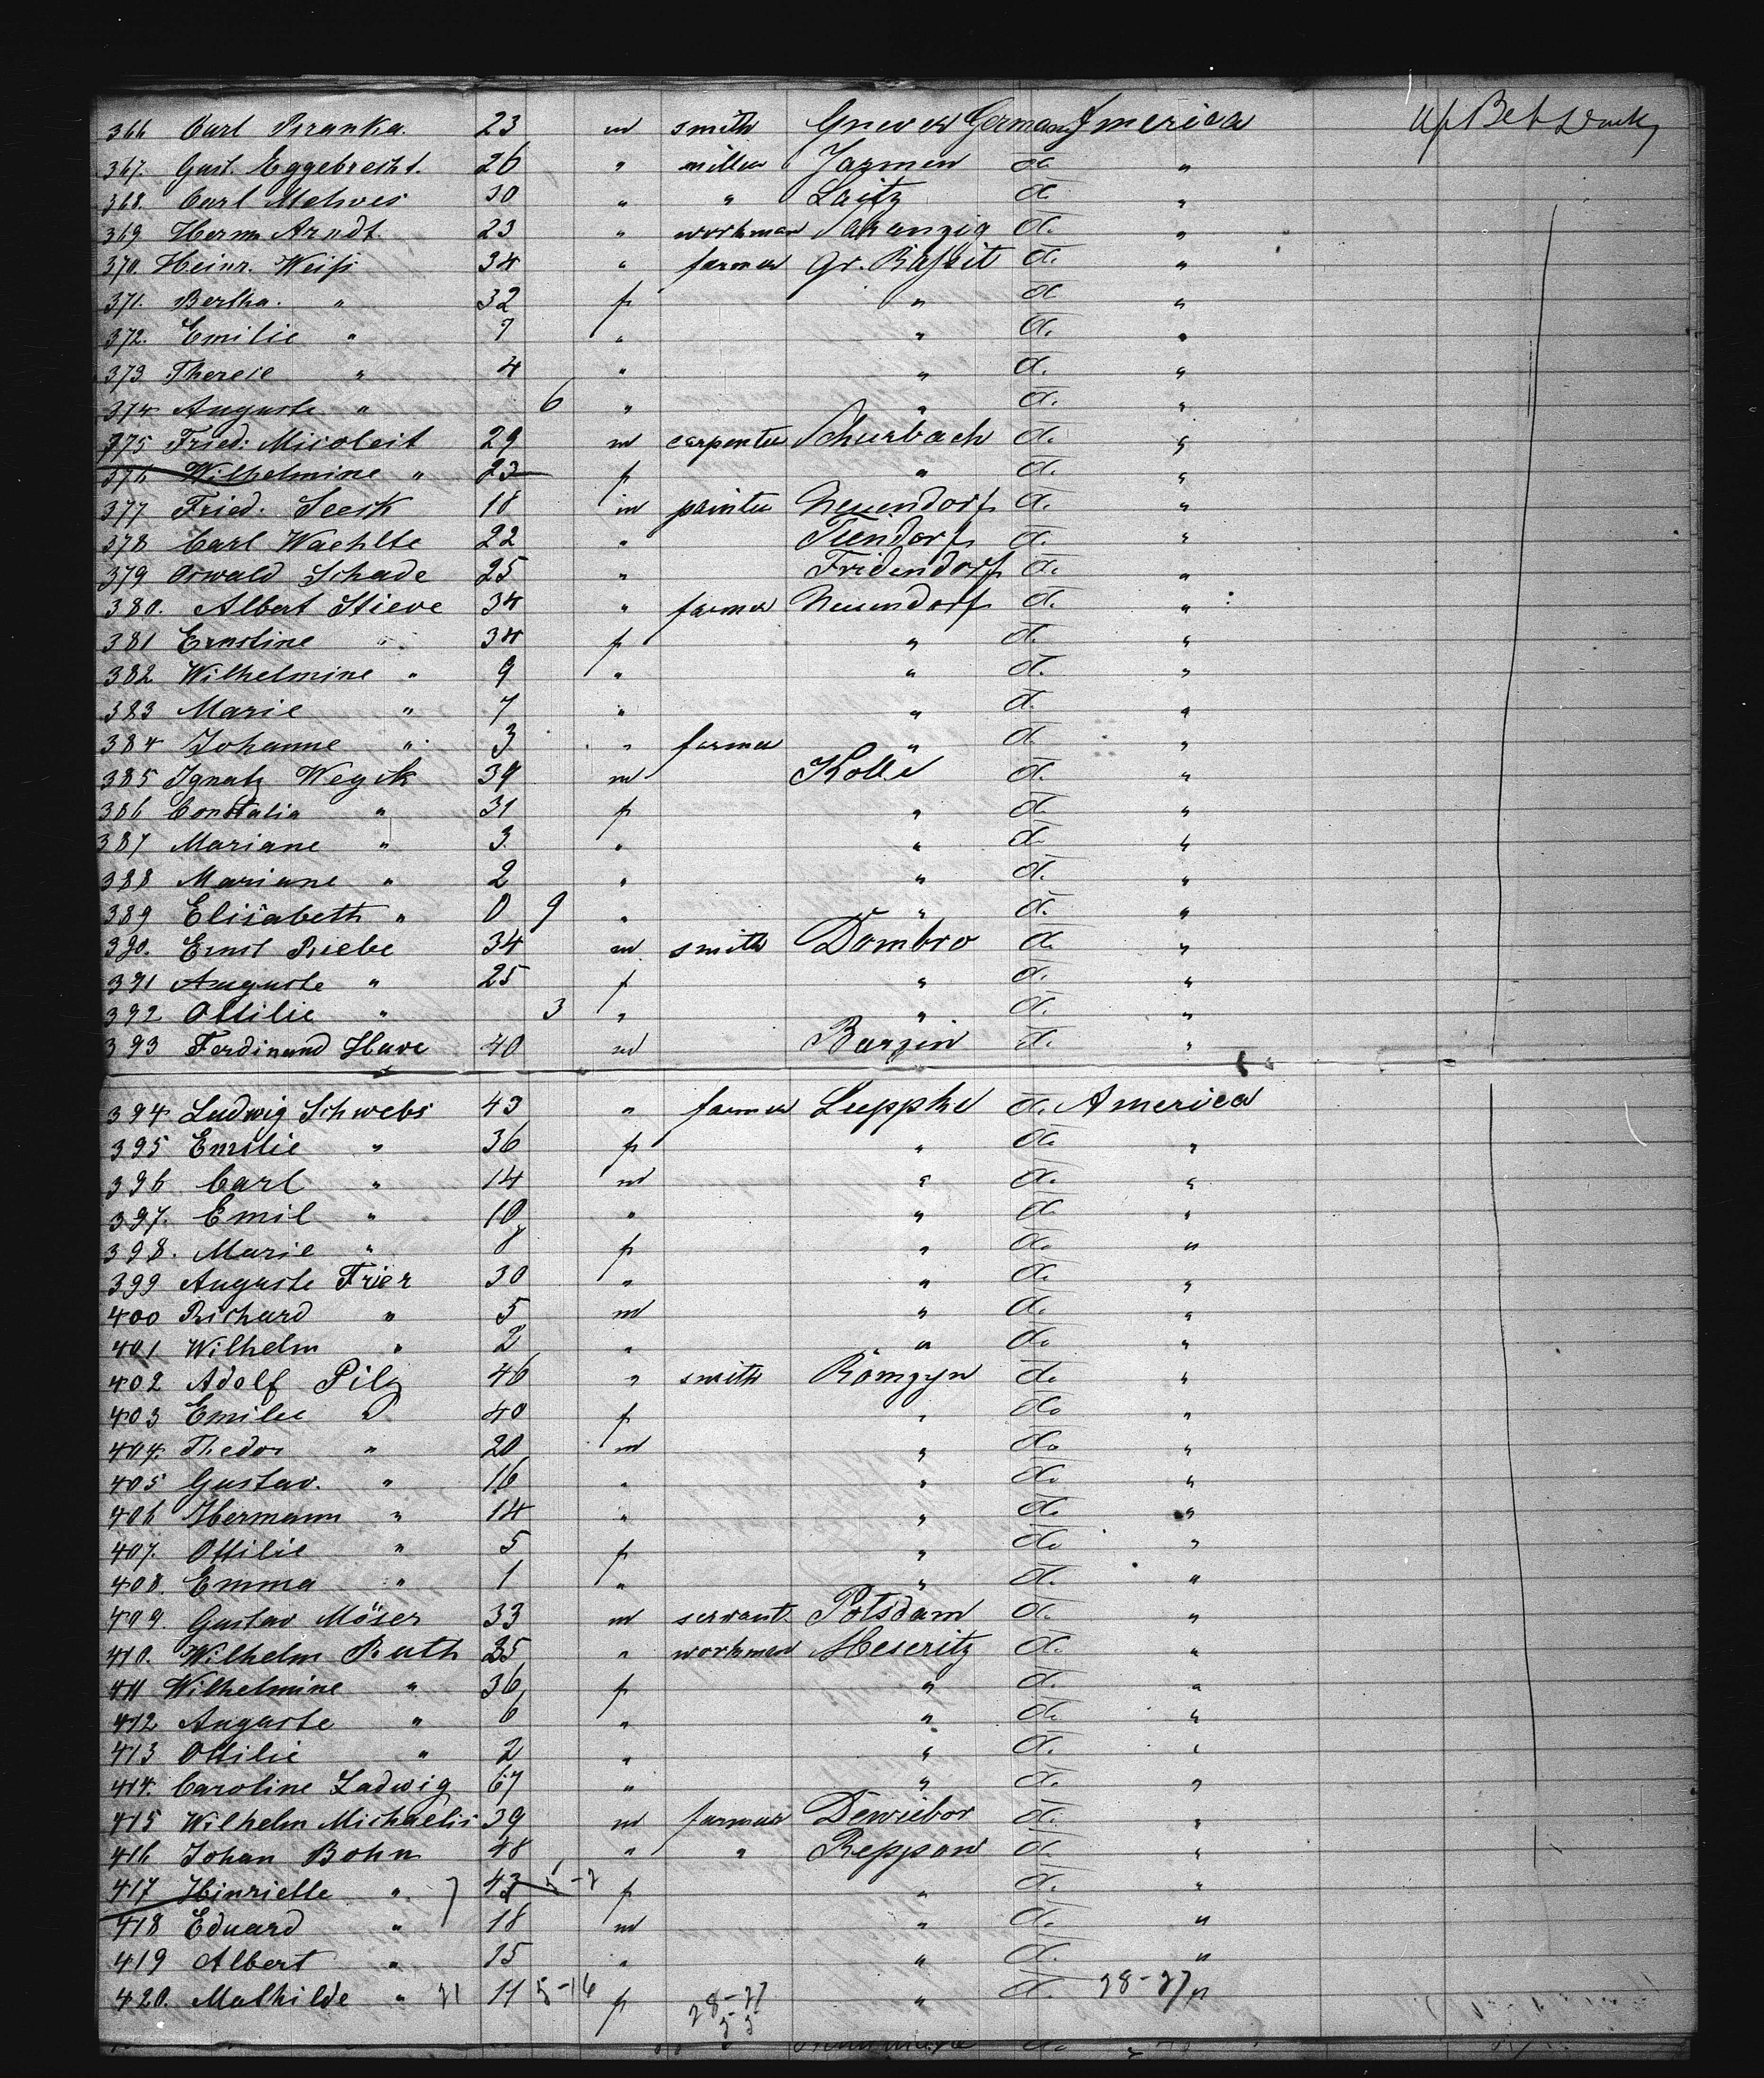 366 Carl Pranka. 23 m smith Gnewew Germany America Up Bet Deck
367. Gust. Eggebrecht. 26 " miller Jarmen d. "
368. Carl Mehves 30 " " Laitz d. "
369 Herm Arndt 23 " workman Saranzig d. "
370. Heinr. Weiß 34 " farmer Gr. Raßit d. "
371. Bertha. " 32 f " d. "
372. Emilie " 7 " " d. "
373 Therese " 4 " " d. "
374 Auguste " 6 " " d. "
375 Fried: Micoleit 29 m carpenter Schurbach d. "
376 Wilhelmine " 23 f " d. "
377 Fried. Seesk 18 m painter Neuendorf d. "
378 Carl Waehlte 22 " Tiendorf d. "
379 Oswald Schade 25 " Fridendorf d. "
380. Albert Stieve 34 " farmer Neuendorf d. "
381 Ernstine " 34 f " d. "
382 Wilhelmine " 9 " " d. "
383 Marie " 7 " " d. "
384 Johanne " 3 " farmer " d. "
385 Ignatz Weyck 39 m Kolle d. "
386 Constalia " 31 f " d. "
387 Mariane " 3. " " d. "
388 Mariane " 2 " " d. "
389 Elisabeth " 0 9 " " d. "
390. Ernst Riebe 34 m. smith Dombro d. "
391 Auguste " 25 f " d. "
392 Ottilie " 3 " " d. "
393 Ferdinand Have 40 m Barzin d. "
394 Ludwig Schwebs 43 " farmer Luppke d. America
395 Emilie " 36 f " d. "
396 Carl " 14 m " d. "
397. Emil " 10 " " d. "
398. Marie " 8 f " d. "
399 Auguste Frier 30 " " d. "
400 Richard " 5 m " d. "
401 Wilhelm " 2 " " do "
402 Adolf Pilz 46 " smith Römzyn do "
403 Emilie " 40 f " do "
404. Thedor " 20 m " do "
405 Gustav. " 16 " " do "
406 Hermann " 14 " " do "
407. Ottilie " 5 f " do "
408. Emma " 1 " " d. "
409. Gustav Möser 33 m servant Potsdam d. "
410. Wilhelm Ruth 35 " workman Meseritz d. "
411 Wilhelmine " 36 f " d. "
412 Auguste " 6 " " d. "
413 Ottilie " 2 " " d. "
414. Caroline Ladwig 67 " " d. "
415 Wilhelm Michaelis 39 m farmer Dewsiebor d. "
416 Johan Bohn 48 " " Reppow d. "
417 Hinriette " 43 f " d. "
418 Eduard " 18 m " d. "
419 Albert " 15 " " d. "
420. Mathilde " 21 11 5-16 f 28-27 " d. 28-27 "